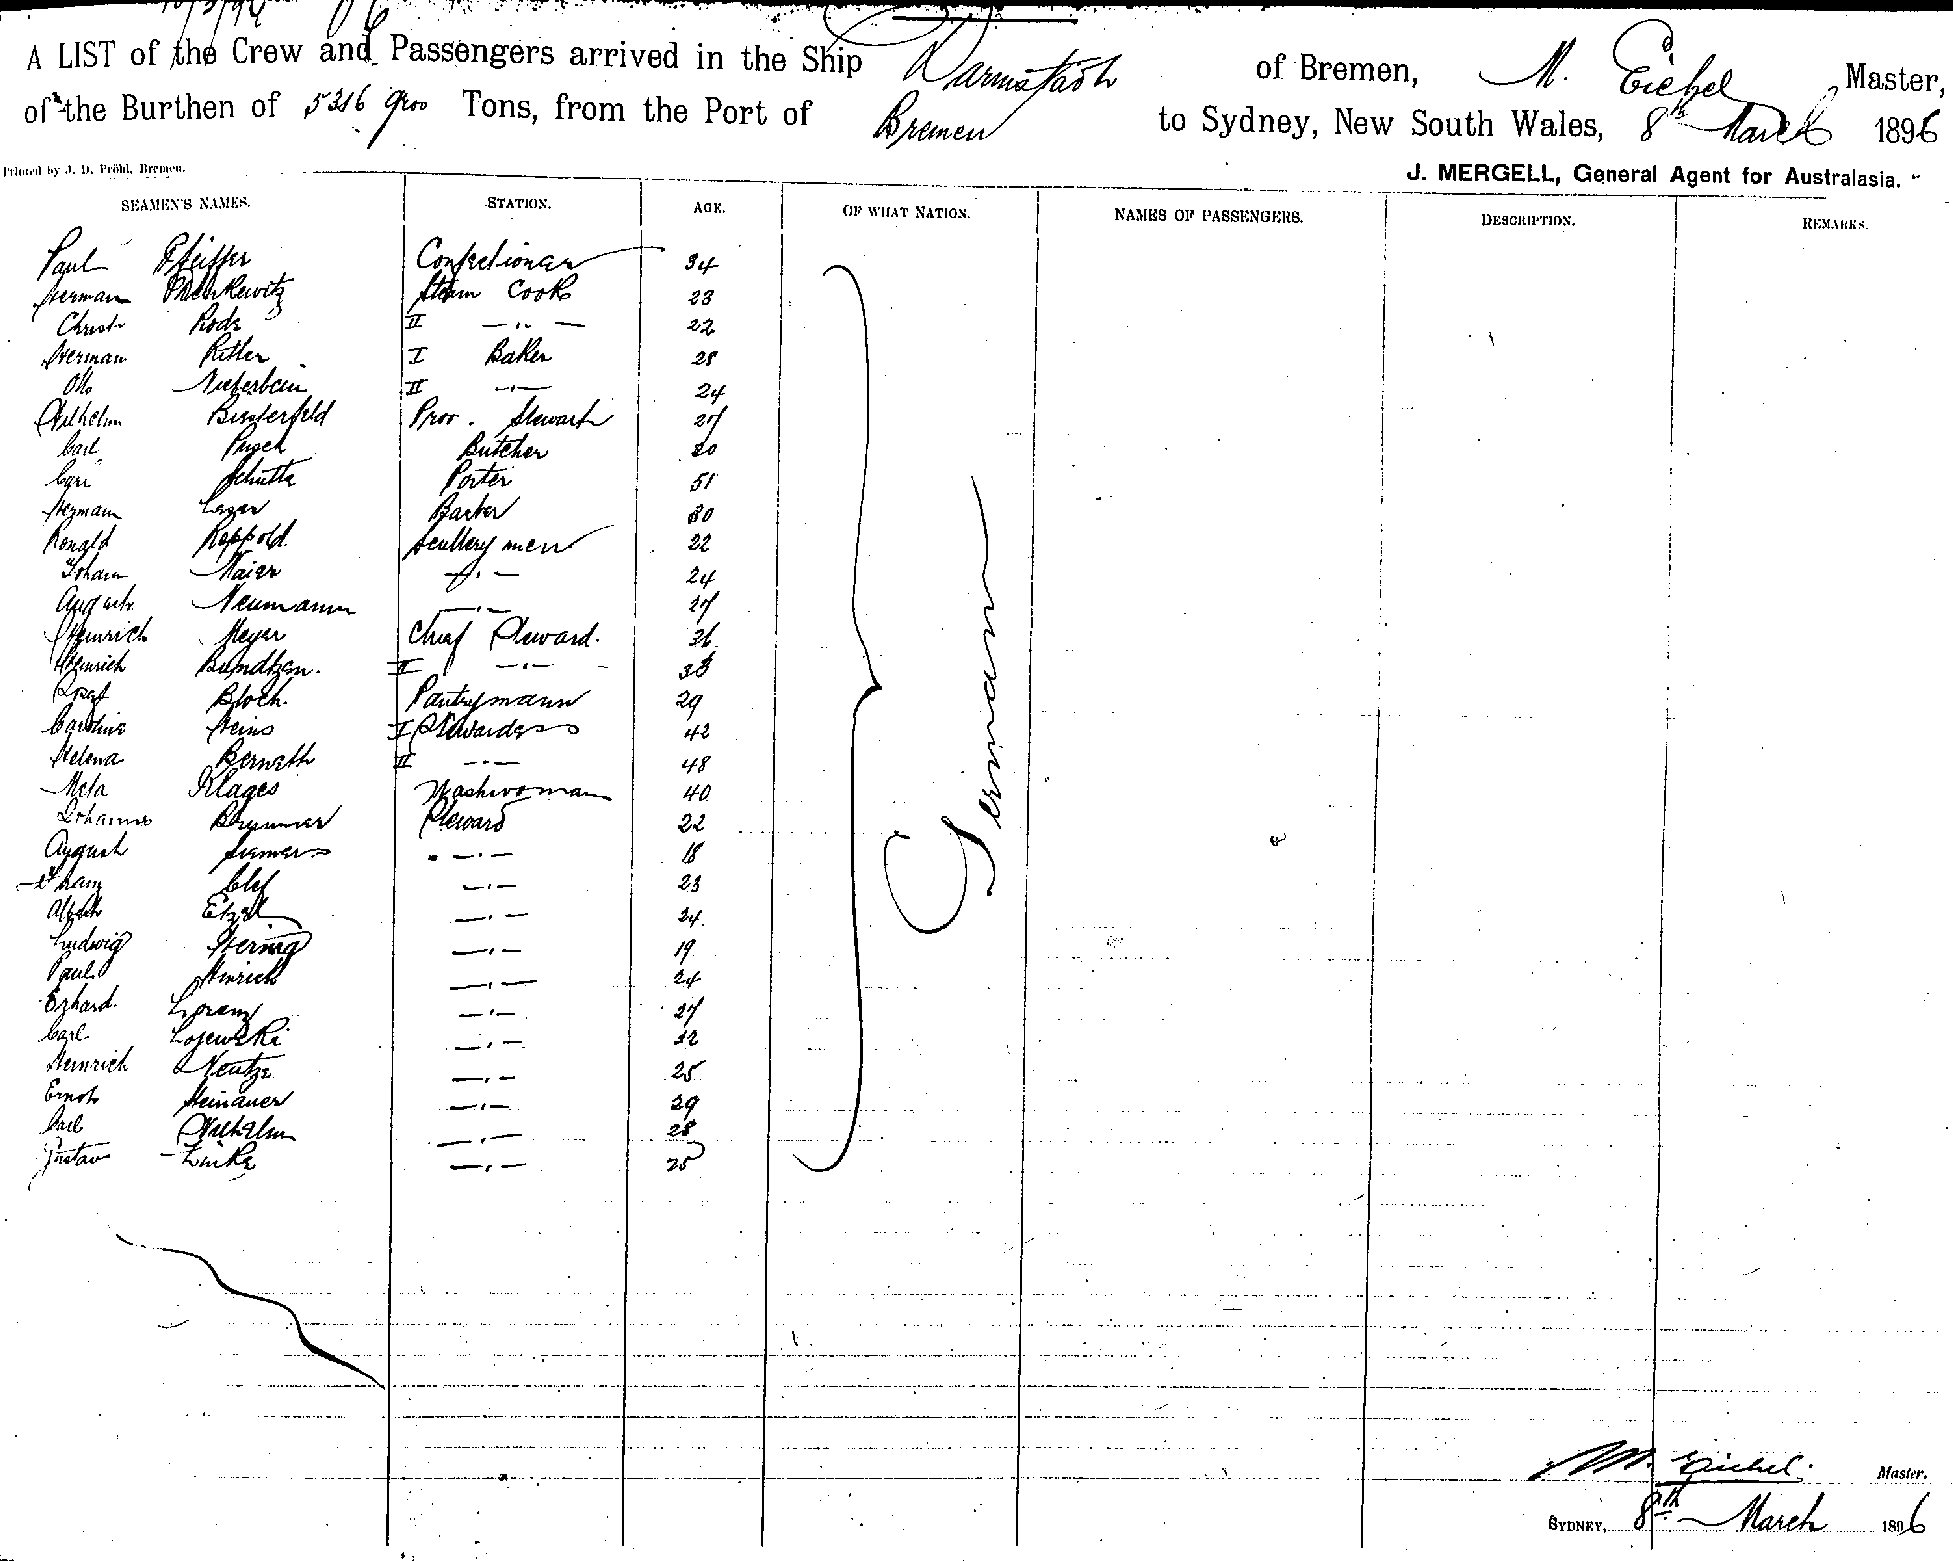 A LIST of the Crew and Passengers arrived in the Ship Darmstadt of Bremen, M. Eichel Master,
of the Burthen of 5316 gross Tons, from the Port of Bremen to Sydney, New South Wales, 8th March 1896
Printed by J. D. Pröhl, Bremen.
J. MERGELL, General Agent for Australasia.
SEAMEN'S NAMES. STATION. AGE. OF WHAT NATION. NAMES OF PASSENGERS. DESCRIPTION. REMARKS.
Paul Pfeiffer Confectioner 34
Herman Steam Cook 23
Christ Rode II —"— 22
Herman Ritter I Baker 28
Otto Nieterbein II —"— 24
Wilhelm Biesterfeld Prov. Stewart 27
Carl Pusch Butcher 20
Carl Schutte Porter 51
Hermann Leger Barber 30
Ronald Reppold Scullery men 22
Johann Maier —"— 24
August Neumann —"— 27
Heinrich Meyer Chief Steward. 36
Heinrich Bundtzen. II —"—
Bloch. Pantrymann 29
Caroline Heins I Stewardess 42
Helena Bernath II —"— 48
Meta Klages Washwoman 40
Johannes Brunner Steward 22
August Siemers —"— 18
Franz Clef —"— 23
Albert Etzel —"— 24
Ludwig Hering —"— 19
Paul Hinrich —"— 24
Erhard. Lorenz —"— 27
Carl Lojewski —"—
Heinrich Neutze —"— 25
Ernst Steinauer —"— 29
Carl Wilhelm —"— 28
Gustav Linke —"— 25
German
M. Eichel. Master.
SYDNEY, 8th March 1896